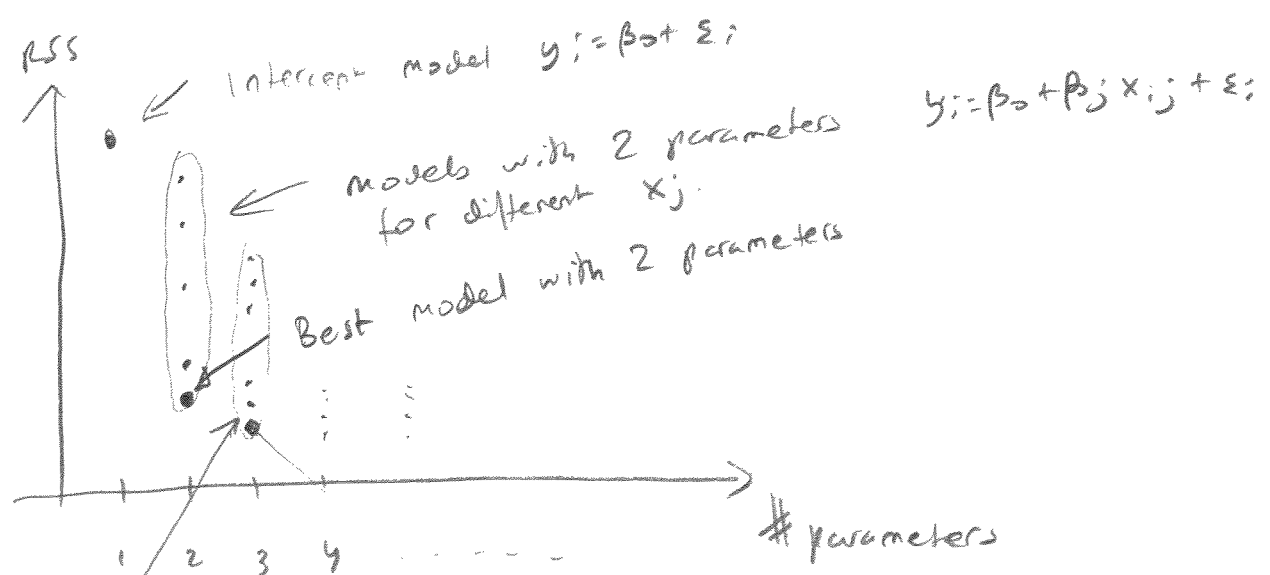 RSS
Intercept model yi = β0 + εi
yi = β0 + βj xij + εi
models with 2 parameters
for different xj.
Best model with 2 parameters
1 2 3 4 - - - -
# parameters